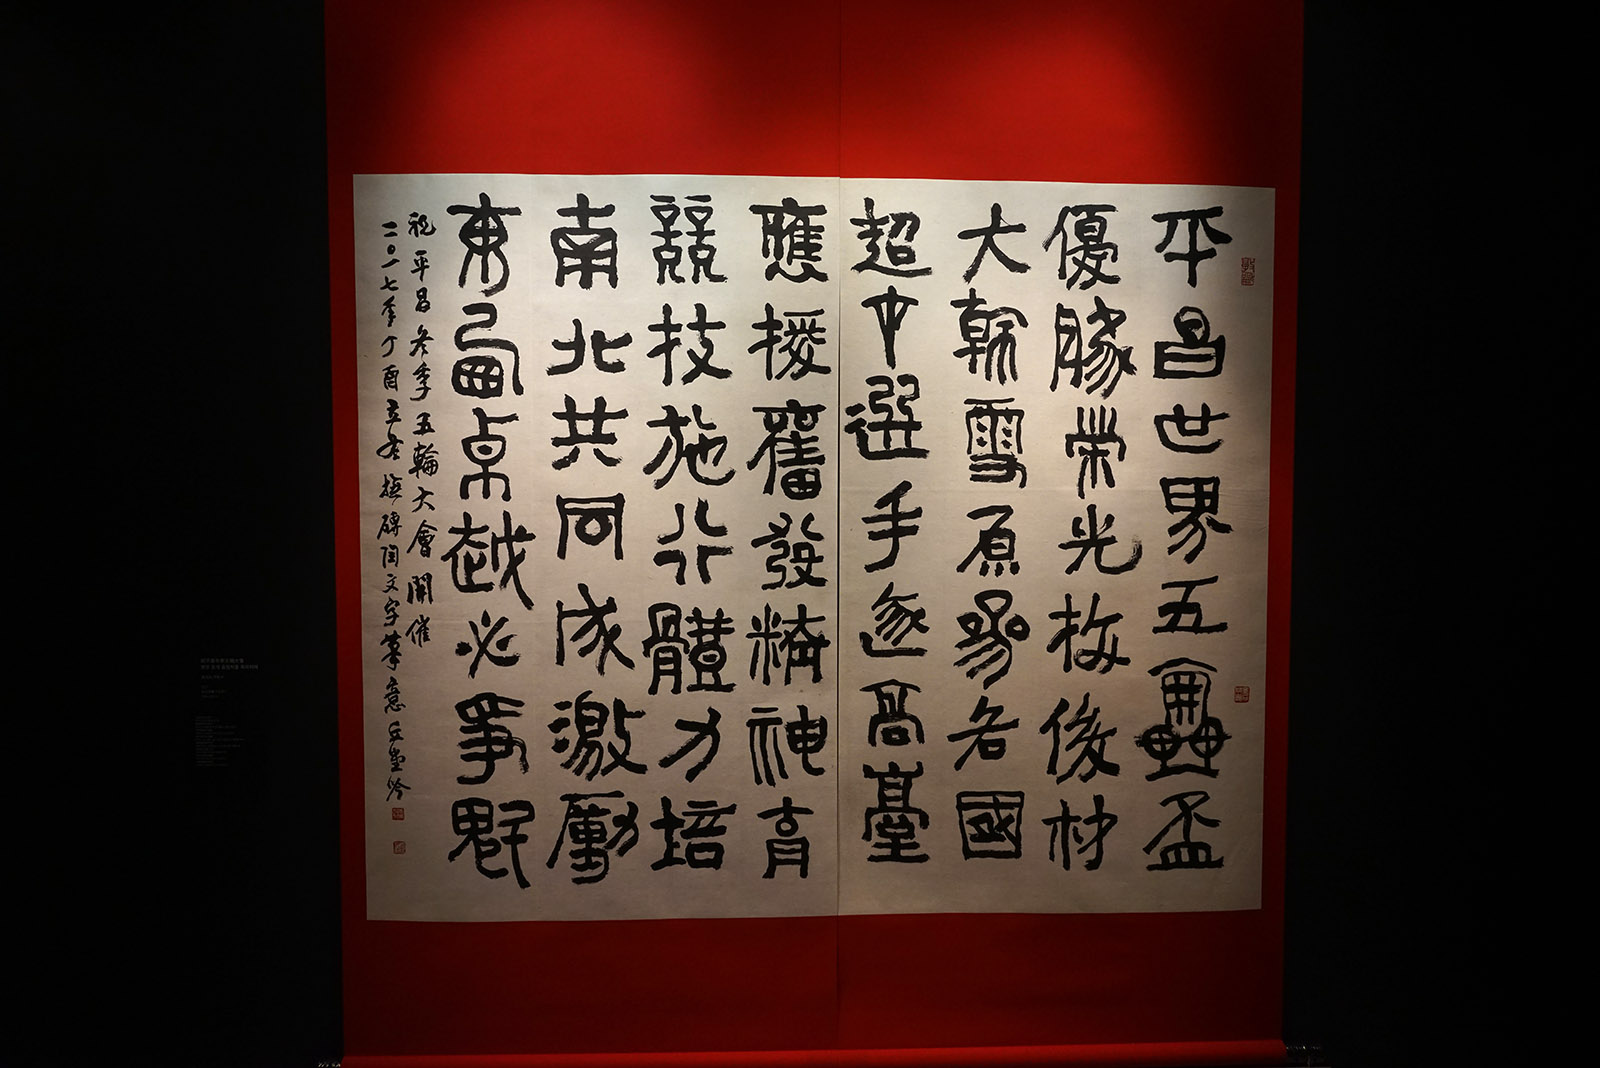 平昌世界五輪盃
優勝榮光後材
大韓雪原名國
超中選手逐高臺
應援奮發精神育
競技施行體力培
南北共同成激勵
東西卓越必爭魁
祝平昌冬季五輪大會開催
二〇一七年丁酉立冬碑文字筆意丘堂